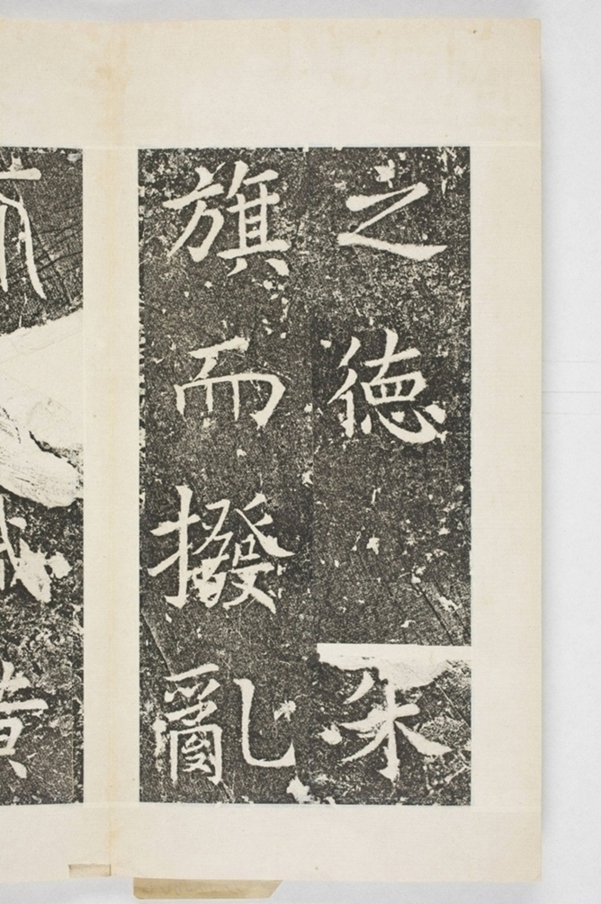 之德朱
旗而撥亂
黃